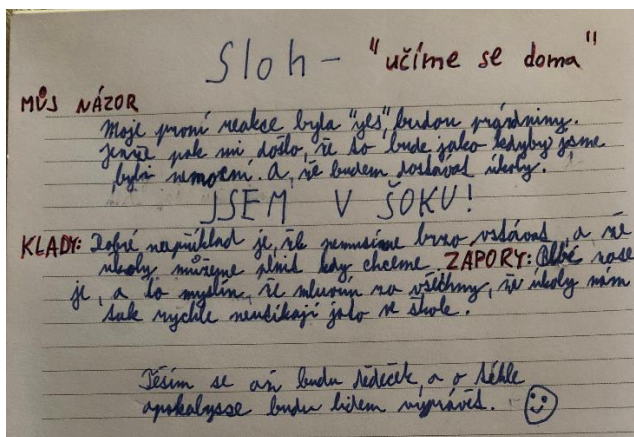 Sloh - "učíme se doma"
MŮJ NÁZOR
Moje první reakce byla "yes", budou prázdniny.
Jenže pak mi došlo, že to bude jako kdyby jsme
byli nemocní. A, že budem dostávat úkoly.
JSEM V ŠOKU!
KLADY: Dobré například je, že nemusíme brzo vstávat, a že
úkoly můžeme plnit kdy chceme. ZÁPORY: Blbé zase
je, a to myslím, že mluvím za všechny, že úkoly nám
tak rychle neutíkají jako ve škole.
Těším se až budu dědeček, a o téhle
apokalypse budu lidem vyprávět.